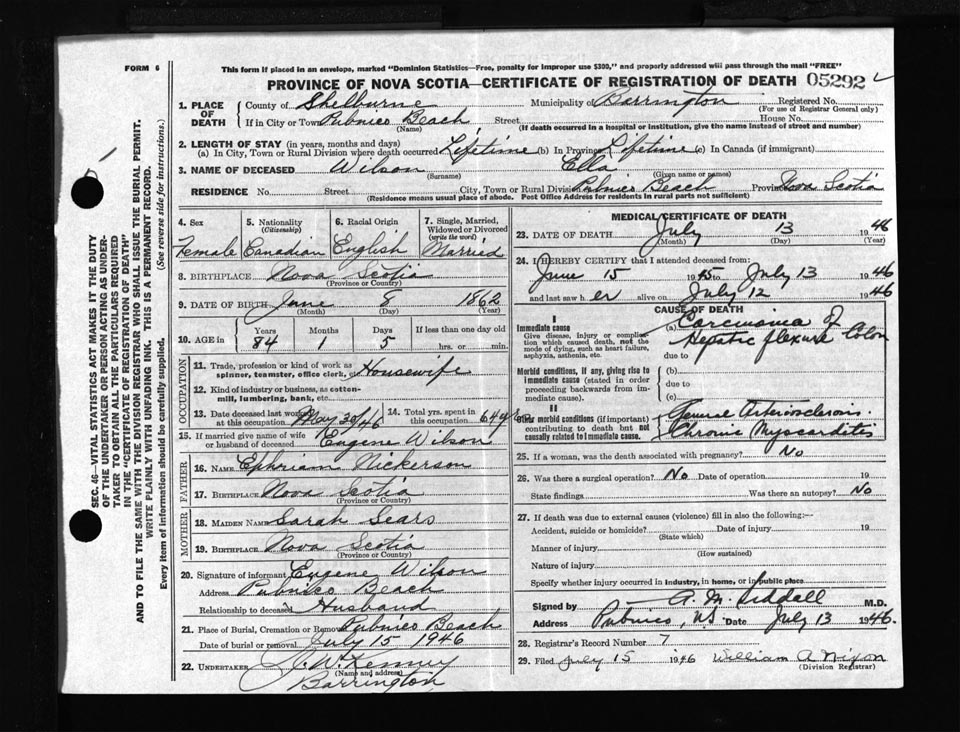 FORM 6
This form if placed in an envelope, marked "Dominion Statistics—Free, penalty for improper use $300," and properly addressed will pass through the mail "FREE"
PROVINCE OF NOVA SCOTIA—CERTIFICATE OF REGISTRATION OF DEATH 05292
1. PLACE OF DEATH
County of Shelburne Municipality of Barrington Registered No.
(For use of Registrar General only)
If in City or Town Pubnico Beach Street House No.
(Name) (If death occurred in a hospital or institution, give the name instead of street and number)
2. LENGTH OF STAY (in years, months and days)
(a) In City, Town or Rural Division where death occurred Lifetime (b) In Province Lifetime (c) In Canada (if immigrant)
3. NAME OF DECEASED Wilson Ella
(Surname) (Given name or names)
RESIDENCE No. Street City, Town or Rural Division Pubnico Beach Province Nova Scotia
(Residence means usual place of abode. Post Office Address for residents in rural parts not sufficient)
4. Sex Female
5. Nationality (Citizenship) Canadian
6. Racial Origin English
7. Single, Married, Widowed or Divorced (write the word) Married
8. BIRTHPLACE Nova Scotia
(Province or Country)
9. DATE OF BIRTH June 8 1862
(Month) (Day) (Year)
10. AGE in Years Months Days If less than one day old
84 1 5 hrs. or min.
OCCUPATION
11. Trade, profession or kind of work as spinner, teamster, office clerk, etc. Housewife
12. Kind of industry or business, as cotton-mill, lumbering, bank, etc.
13. Date deceased last worked at this occupation May 30/46
14. Total yrs. spent in this occupation 64 yrs
15. If married give name of wife or husband of deceased Eugene Wilson
FATHER
16. Name Ephriam Nickerson
17. Birthplace Nova Scotia
(Province or Country)
MOTHER
18. Maiden Name Sarah Sears
19. Birthplace Nova Scotia
(Province or Country)
20. Signature of informant Eugene Wilson
Address Pubnico Beach
Relationship to deceased Husband
21. Place of Burial, Cremation or Removal Pubnico Beach
Date of burial or removal July 15 1946
22. UNDERTAKER J. W. Kenney
(Name and address)
Barrington
MEDICAL CERTIFICATE OF DEATH
23. DATE OF DEATH July 13 1946
(Month) (Day) (Year)
24. I HEREBY CERTIFY that I attended deceased from:
June 15 1945 to July 13 1946
and last saw her alive on July 12 1946
CAUSE OF DEATH
I
Immediate cause
Give disease, injury or complication which caused death, not the mode of dying, such as heart failure, asphyxia, asthenia, etc.
(a) Carcinoma of
Hepatic flexure Colon
due to
Morbid conditions, if any, giving rise to immediate cause (stated in order proceeding backwards from immediate cause).
(b)
due to
(c)
II
Other morbid conditions (if important) contributing to death but not causally related to immediate cause.
General Arteriosclerosis.
Chronic Myocarditis
25. If a woman, was the death associated with pregnancy? No
26. Was there a surgical operation? No Date of operation 19
State findings Was there an autopsy? No
27. If death was due to external causes (violence) fill in also the following:—
Accident, suicide or homicide? Date of injury 19
(State which)
Manner of injury
(How sustained)
Nature of injury
Specify whether injury occurred in industry, in home, or in public place
Signed by A. M. Siddall M.D.
Address Pubnico, NS Date July 13 1946.
28. Registrar's Record Number 7
29. Filed July 15 1946 William A Nixon
(Division Registrar)
SEC. 46—VITAL STATISTICS ACT MAKES IT THE DUTY
OF THE UNDERTAKER OR PERSON ACTING AS UNDER-
TAKER TO OBTAIN ALL THE PARTICULARS REQUIRED
IN THE "CERTIFICATE OF REGISTRATION OF DEATH"
AND TO FILE THE SAME WITH THE DIVISION REGISTRAR WHO SHALL ISSUE THE BURIAL PERMIT.
WRITE PLAINLY WITH UNFADING INK. THIS IS A PERMANENT RECORD.
Every item of information should be carefully supplied. (See reverse side for instructions.)